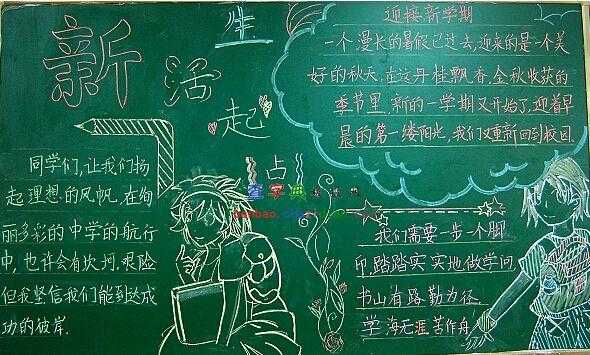 新
生
活
起
点
迎接新学期
一个漫长的暑假已过去,迎来的是一个美
好的秋天,在这丹桂飘香,金秋收获的
季节里,新的一学期又开始了,迎着早
晨的第一缕阳光,我们又重新回到校园.
同学们,让我们扬
起理想的风帆,在绚
丽多彩的中学的航行
中,也许会有坎坷,艰险
但我坚信我们能到达成
功的彼岸.
我们需要一步一个脚
印,踏踏实实地做学问
书山有路勤为径.
学海无涯苦作舟